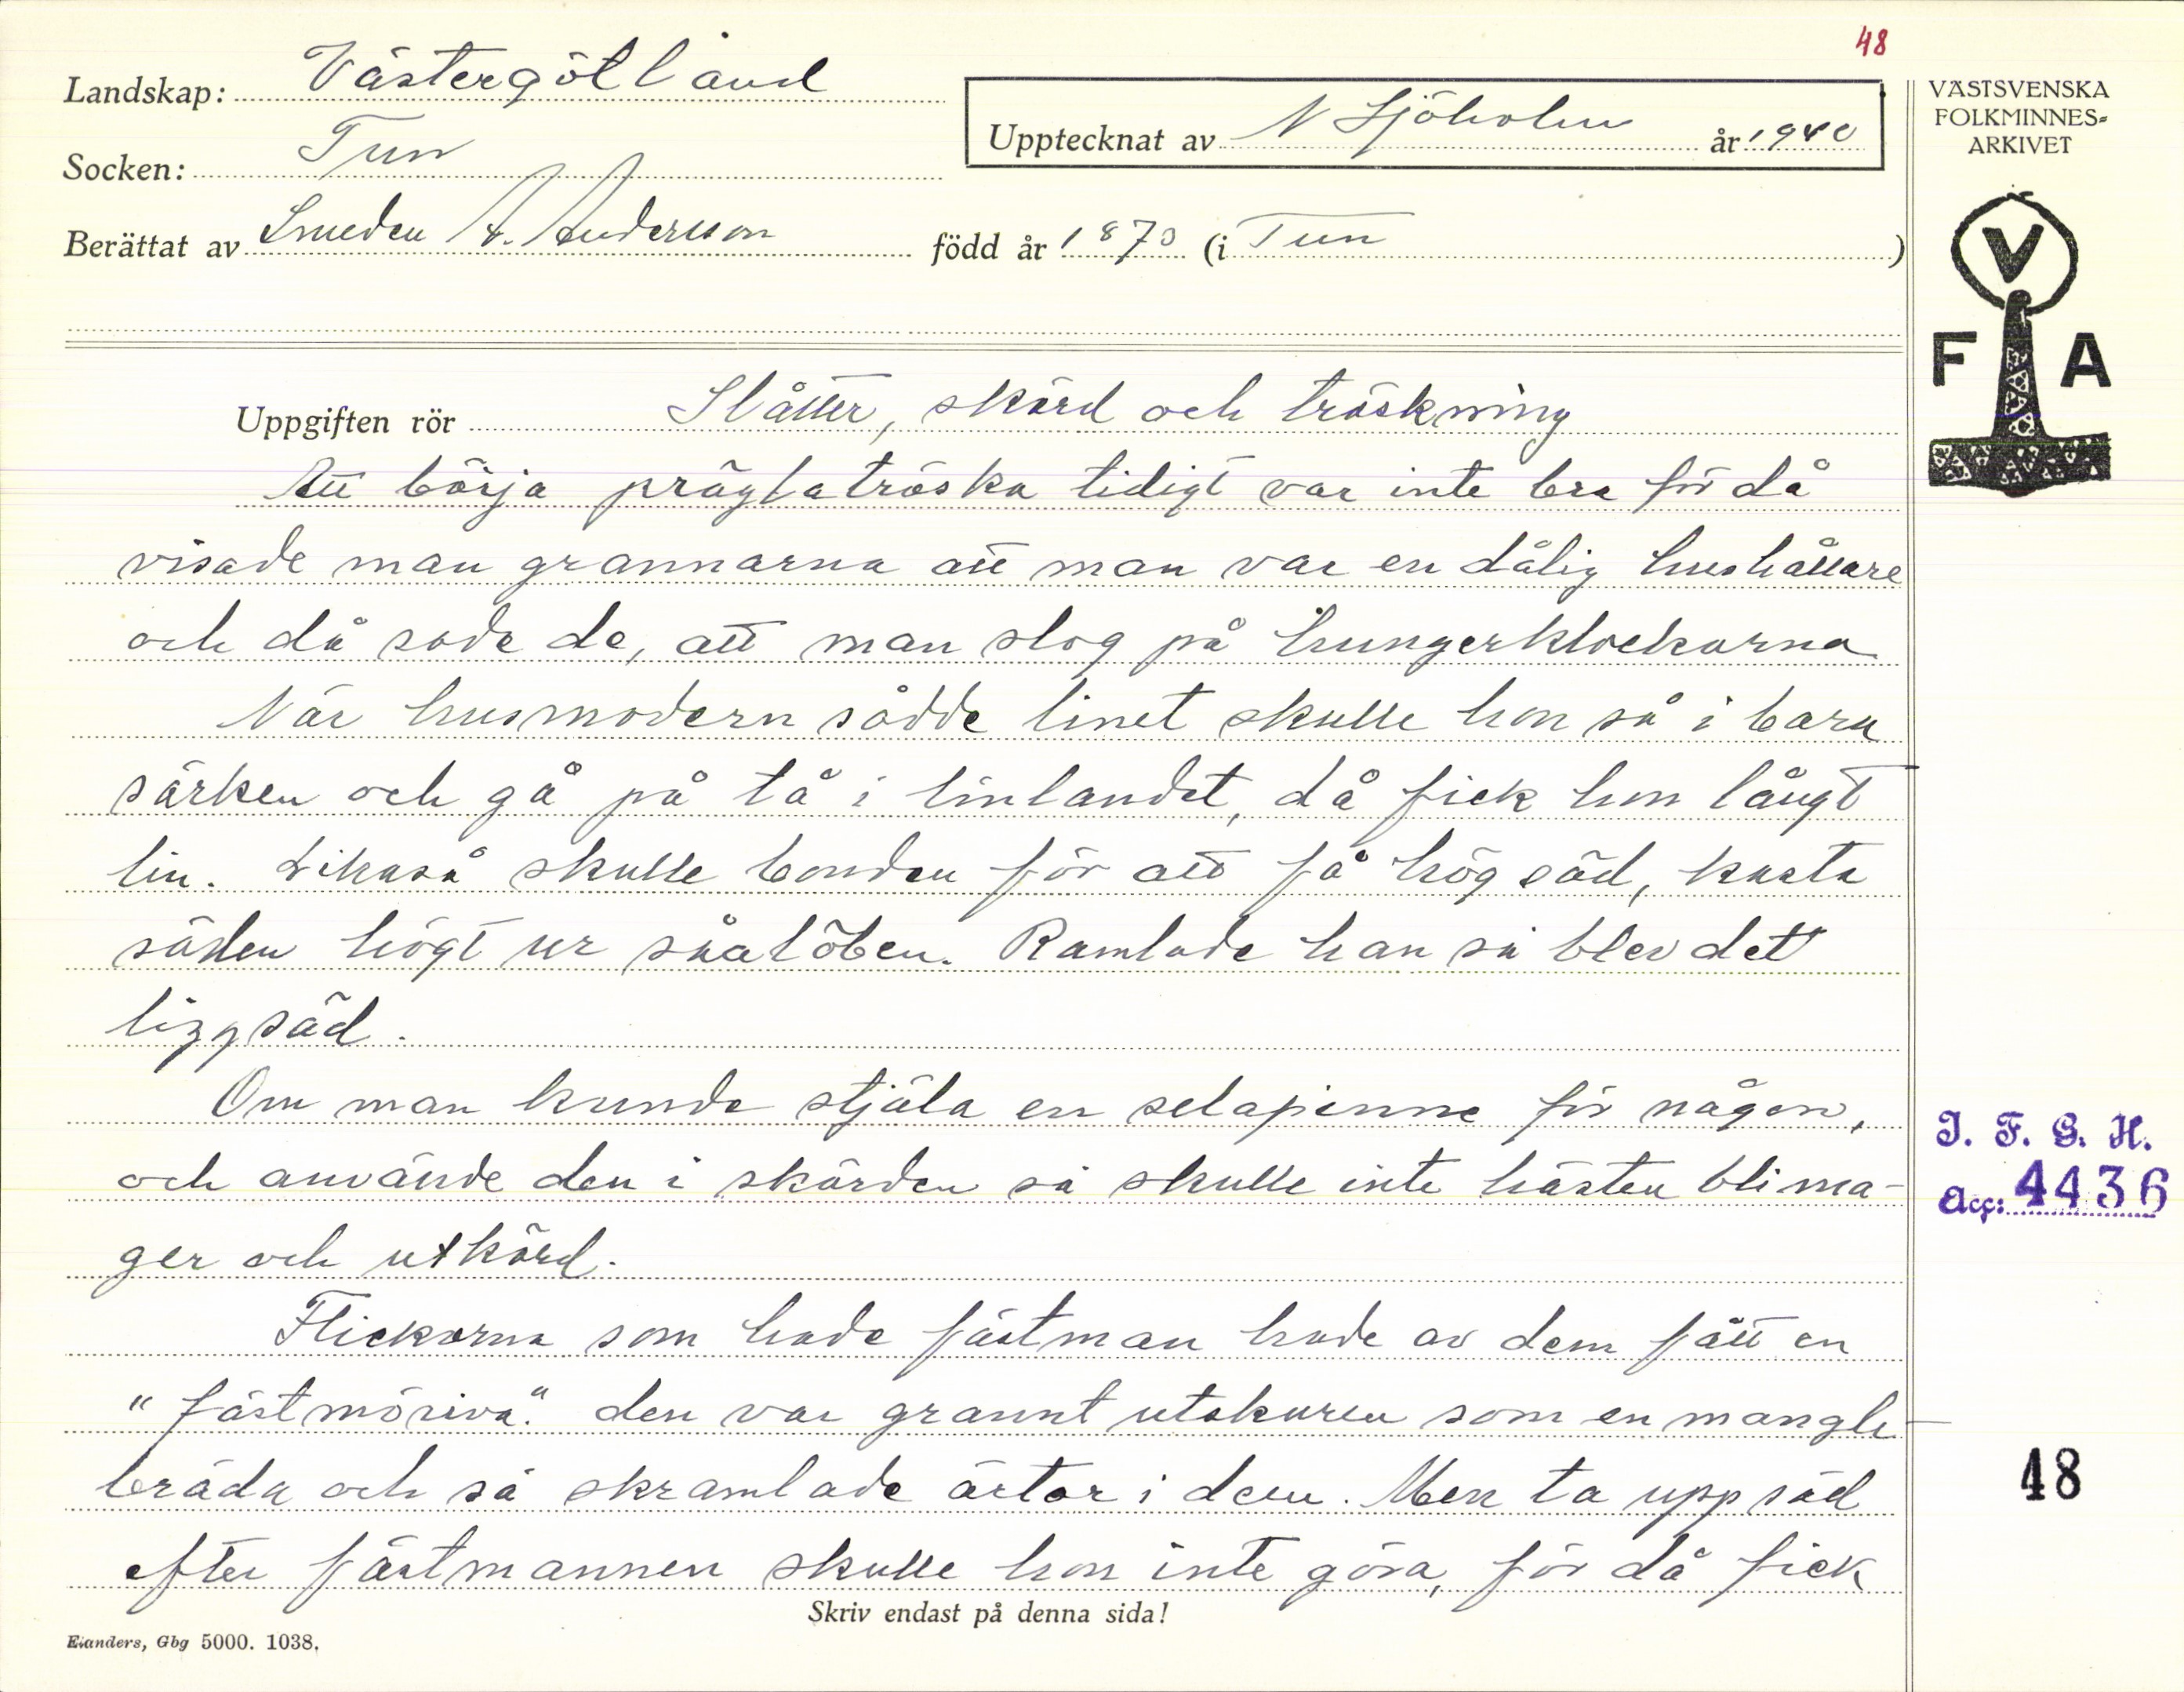 48
Landskap: Västergötland
Socken: Tun
Upptecknat av N Sjöholm år 1940
Berättat av Smeden A. Andersson född år 1870 (i Tun )
VÄSTSVENSKA
FOLKMINNES-
ARKIVET
V
F A
Uppgiften rör Slåtter, skörd och tröskning
Att börja prägla tröska tidigt var inte bra för då
visade man grannarna att man var en dålig hushållare
och då sade de, att man slog på hungerklockorna
När husmodern sådde linet skulle hon så i bara
särken och gå på tå i linlandet, då fick hon långt
lin. Likaså skulle bonden för att få hög säd, kasta
säden högt ur såalöben. Ramlade han så blev det
liggsäd.
Om man kunde stjäla en selapinne för någon,
och använde den i skörden så skulle inte hästen bli ma-
ger och utkörd.
Flickorna som hade fästman hade av dem fått en
"fästmöriva". den var grannt utskuren som en mangle-
bräda och så skramlade ärtor i den. Men ta upp säd
efter fästmannen skulle hon inte göra, för då fick
Skriv endast på denna sida!
Elanders, Gbg 5000. 1038.
I. F. G. H.
Acc: 4436
48